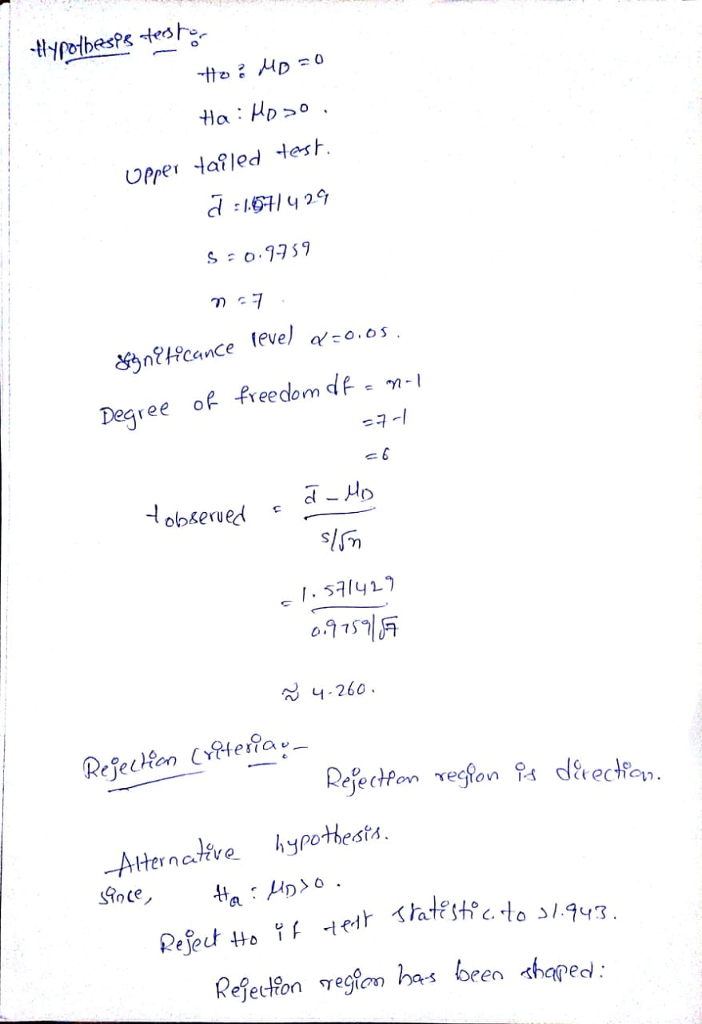 Hypothesis test :-
H0 : μD = 0
Ha : μD > 0 .
Upper tailed test.
d̄ = 1.571429
s = 0.9759
n = 7 .
Significance level α = 0.05 .
Degree of freedom df = n-1
= 7-1
= 6
t observed = d̄ - μD
s/√n
= 1.571429
0.9759/√7
≈ 4.260.
Rejection Criteria :-
Rejection region is direction.
Alternative hypothesis.
since, Ha : μD > 0 .
Reject H0 if test statistic to > 1.943 .
Rejection region has been shaped :